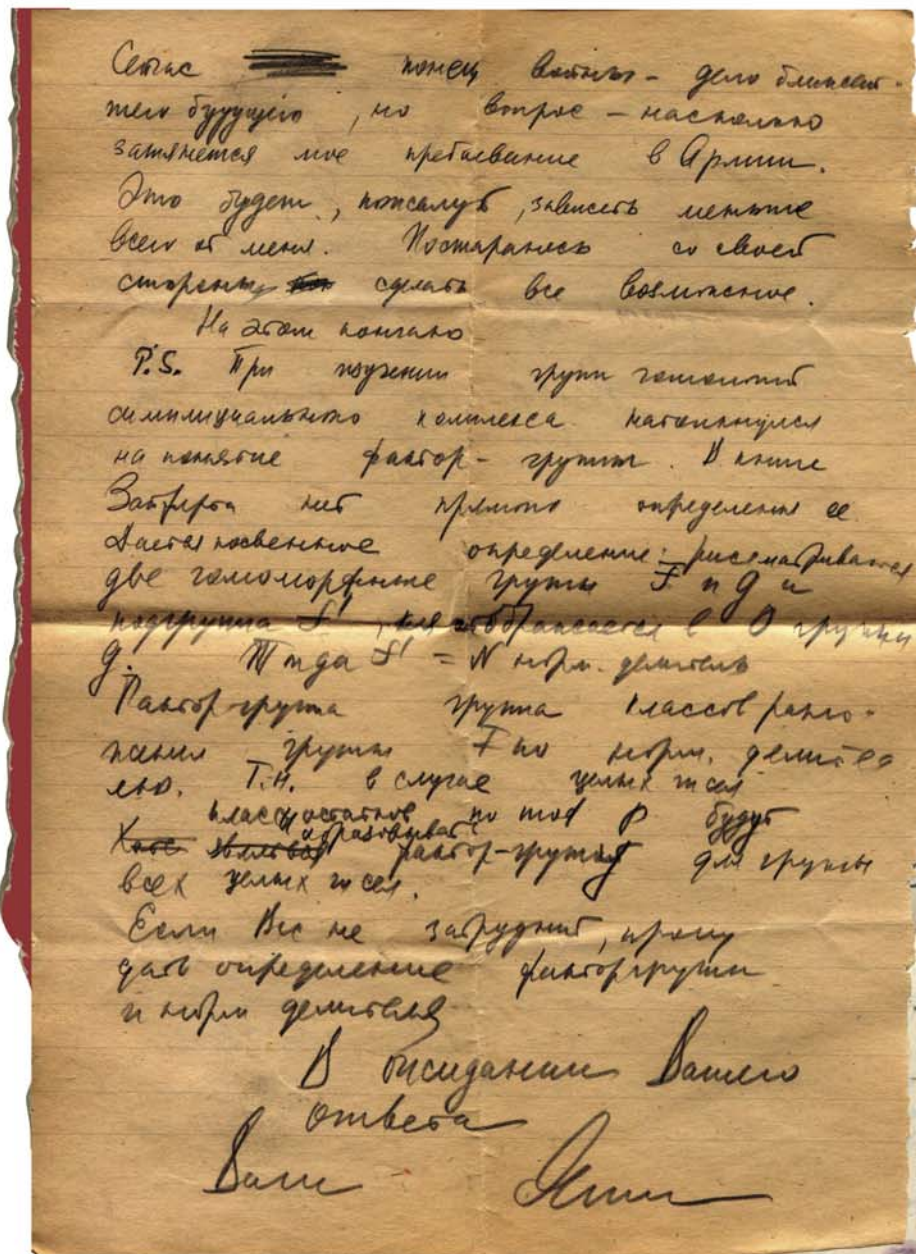 Сейчас конец войны – дело ближай-
шего будущего, но вопрос – насколько
затянется мое пребывание в Армии.
Это будет, пожалуй, зависеть меньше
всего от меня. Постараюсь со своей
стороны сделать все возможное.
На этом кончаю
P.S. При изучении групп гомологий
симплициального комплекса натолкнулся
на понятие фактор-группы. В книге
Зейферта нет прямого определения ее
Дается косвенное определение: рассматриваются
две гомоморфные группы F и G и
подгруппа F', отображается в O группы
G. Тогда F' = N норм. делитель
Фактор-группа группа классов разло-
жения группы F по норм. делите
лю. Т.н. в случае целых чисел
классы остатков по mod P будут
образовывать фактор-группу для группы
всех целых чисел.
Если Вас не затруднит, прошу
дать определение факторгруппы
и норм делителя
В ожидании Вашего
ответа
Ваш